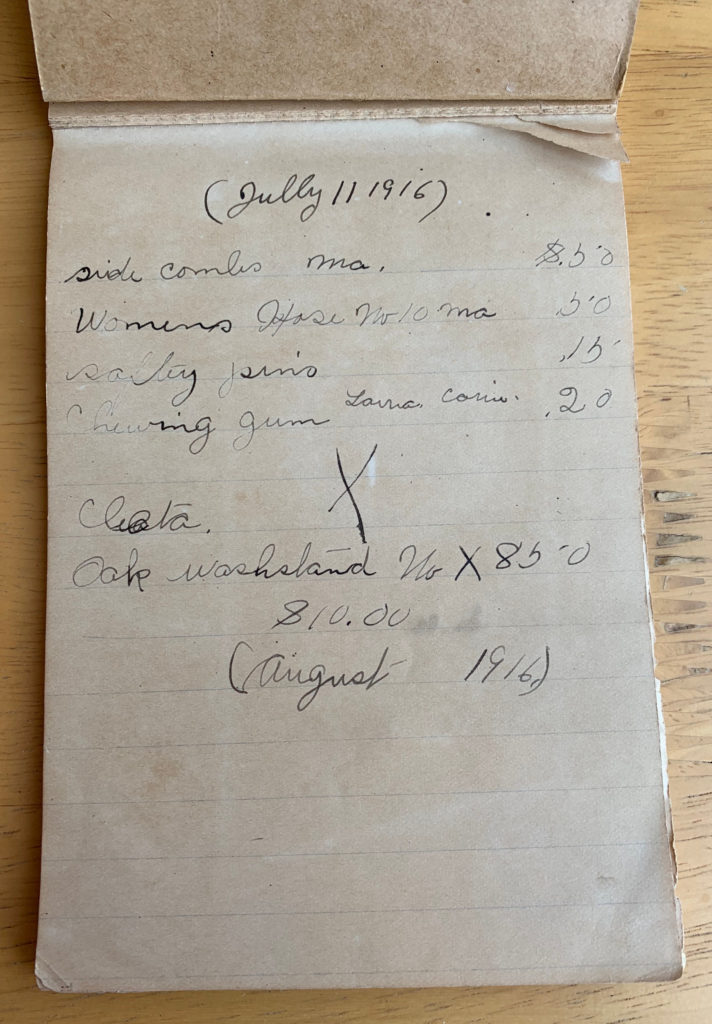 (Jully 11 1916)
side combs ma. $.50
Womens Hose No 10 ma .50
safty pins .15
Chewing gum .20
X
Oak washstand No X 850
$10.00
(August 1916)